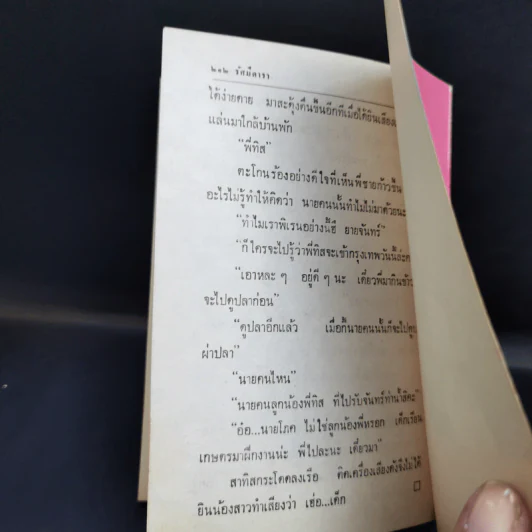 ๒๑๒ รัศมีดารา
ได้ง่ายดาย มาสะดุ้งตื่นขึ้นอีกทีเมื่อได้ยินเสียง
แล่นมาใกล้บ้านพัก
"พี่ทิส"
ตะโกนร้องอย่างดีใจที่เห็นพี่ชายก้าวขึ้น
อะไรไม่รู้ทำให้คิดว่า นายคนนั้นทำไมไม่มาด้วยนะ
"ทำไมเราพิเรนอย่างนี้ฮึ ยายจันทร์"
"ก็ใครจะไปรู้ว่าพี่ทิสจะเข้ากรุงเทพวันนี้ล่ะค
"เอาหละ ๆ อยู่ดี ๆ นะ เดี๋ยวพี่มากินข้าว
จะไปดูปลาก่อน"
"ดูปลาอีกแล้ว เมื่อกี้นายคนนั้นก็จะไปดู
ผ่าปลา"
"นายคนไหน"
"นายคนลูกน้องพี่ทิส ที่ไปรับจันทร์ท่าน้ำสิคะ"
"อ๋อ...นายโภค ไม่ใช่ลูกน้องพี่หรอก เด็กเรียน
เกษตรมาฝึกงานน่ะ พี่ไปละนะ เดี๋ยวมา"
สาทิสกระโดดลงเรือ ติดเครื่องเสียงดังจึงไม่ได้
ยินน้องสาวทำเสียงว่า เฮ่อ...เด็ก